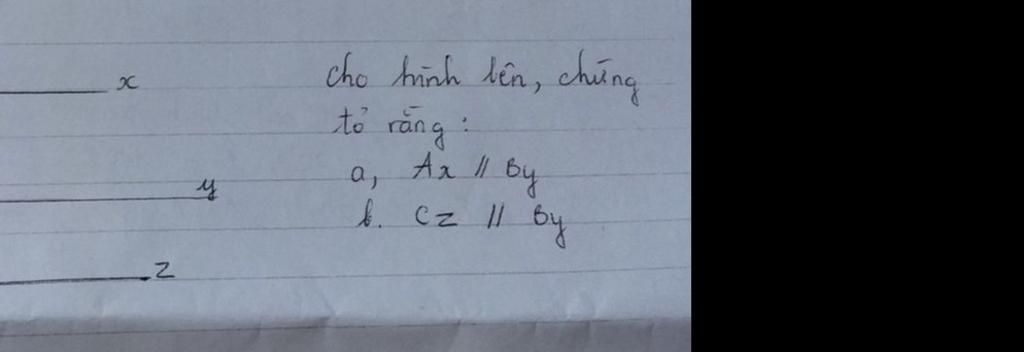 x
cho hình bên, chứng
tỏ rằng :
a, Ax // By
y
b. Cz // By
z